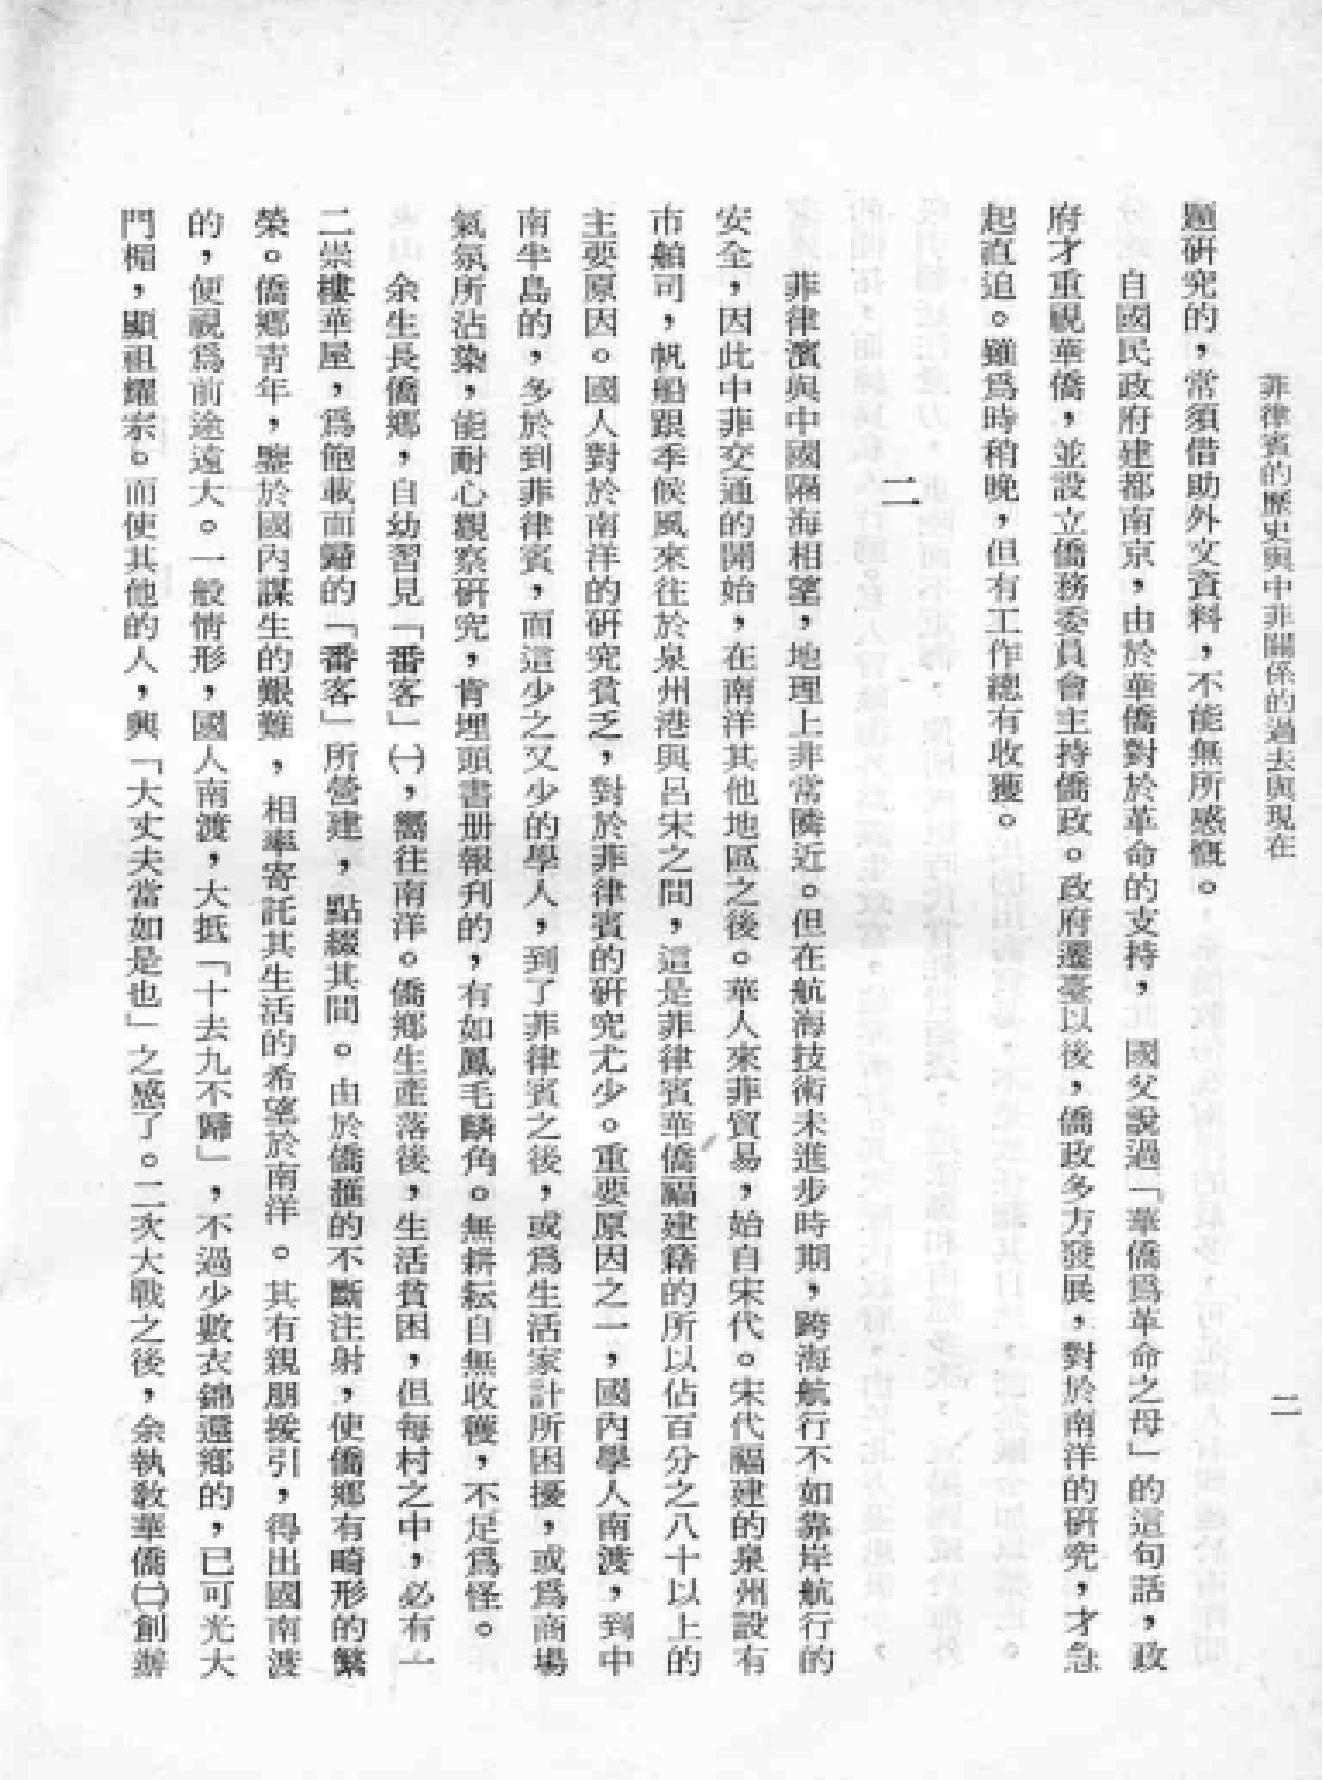 菲律賓的歷史與中非關係的過去與現在
二
題研究的，常須借助外文資料，不能無所感慨。
自國民政府建都南京，由於華僑對於革命的支持，　國父說過「華僑爲革命之母」的這句話，政
府才重視華僑，並設立僑務委員會主持僑政。政府遷臺以後，僑政多方發展，對於南洋的研究，才急
起直追。雖爲時稍晚，但有工作總有收獲。
二
菲律濱與中國隔海相望，地理上非常隣近。但在航海技術未進步時期，跨海航行不如靠岸航行的
安全，因此中非交通的開始，在南洋其他地區之後。華人來菲貿易，始自宋代。宋代福建的泉州設有
市舶司，帆船跟季候風來往於泉州港與呂宋之間，這是菲律賓華僑福建籍的所以佔百分之八十以上的
主要原因。國人對於南洋的研究貧乏，對於菲律賓的研究尤少。重要原因之一，國內學人南渡，到中
南半島的，多於到菲律賓，而這少之又少的學人，到了菲律賓之後，或爲生活家計所困擾，或爲商場
氣氛所沾染，能耐心觀察研究，肯埋頭書册報刋的，有如鳳毛麟角。無耕耘自無收穫，不足爲怪。
余生長僑鄉，自幼習見「番客」㈠，嚮往南洋。僑鄉生產落後，生活貧困，但每村之中，必有一
二崇樓華屋，爲飽載而歸的「番客」所營建，點綴其間。由於僑滙的不斷注射，使僑鄉有畸形的繁
榮。僑鄉靑年，鑒於國內謀生的艱難，相率寄託其生活的希望於南洋。其有親朋援引，得出國南渡
的，便視爲前途遠大。一般情形，國人南渡，大抵「十去九不歸」，不過少數衣錦還鄉的，已可光大
門楣，顯祖耀宗。而使其他的人，興「大丈夫當如是也」之感了。二次大戰之後，余執敎華僑㈡創辦